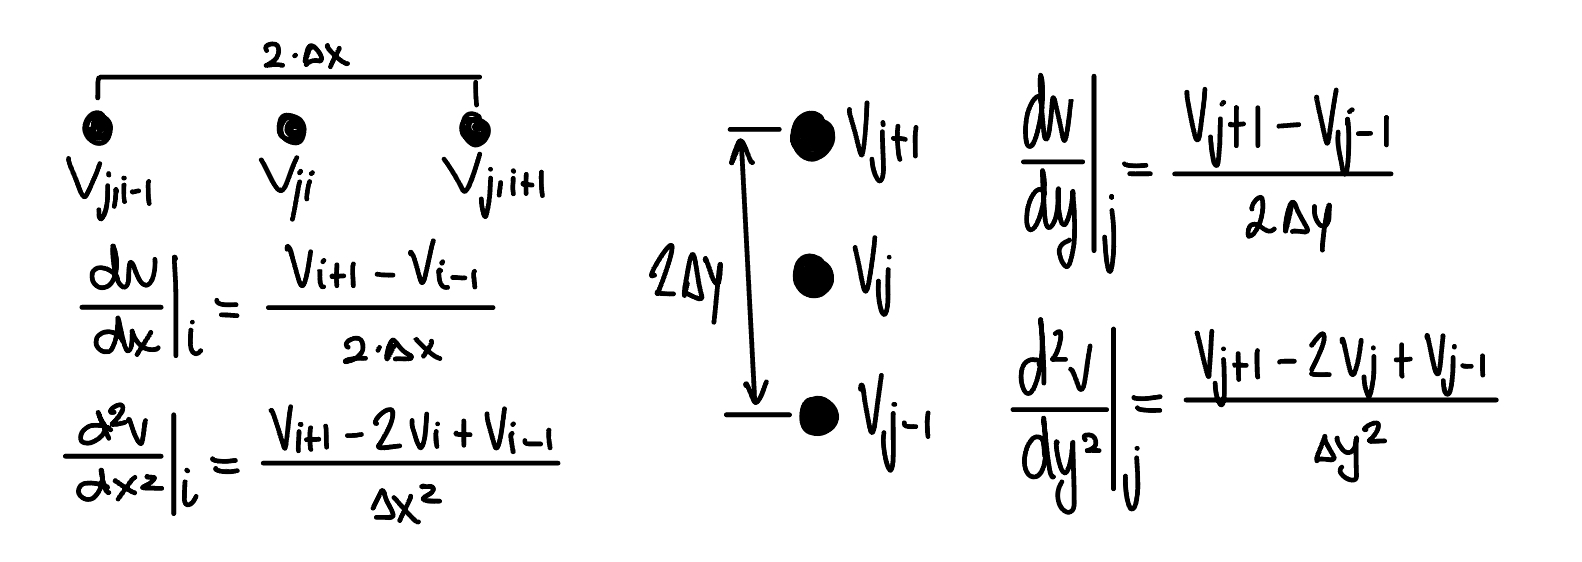 2·Δx
V_{j,i-1} V_{ji} V_{j,i+1}
dv/dx|_i = (V_{i+1} - V_{i-1})/(2·Δx)
d²v/dx²|_i = (V_{i+1} - 2V_i + V_{i-1})/Δx²
V_{j+1}
2Δy V_j
V_{j-1}
dv/dy|_j = (V_{j+1} - V_{j-1})/(2Δy)
d²v/dy²|_j = (V_{j+1} - 2V_j + V_{j-1})/Δy²